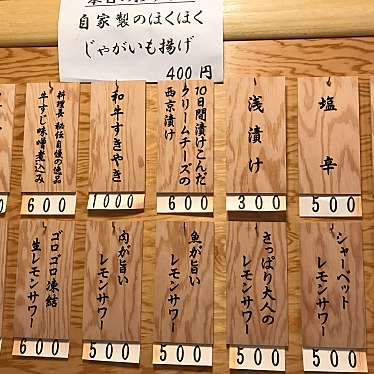 自家製のほくほく
じゃがいも揚げ
400円
塩辛
500
浅漬け
300
10日間漬けこんだ
クリームチーズの
西京漬け
600
和牛すきやき
1000
料理長 秘伝自慢の逸品
牛すじ味噌煮込み
600
シャーベット
レモンサワー
500
さっぱり大人の
レモンサワー
500
魚が旨い
レモンサワー
500
肉が旨い
レモンサワー
500
ゴロゴロ凍結
生レモンサワー
600